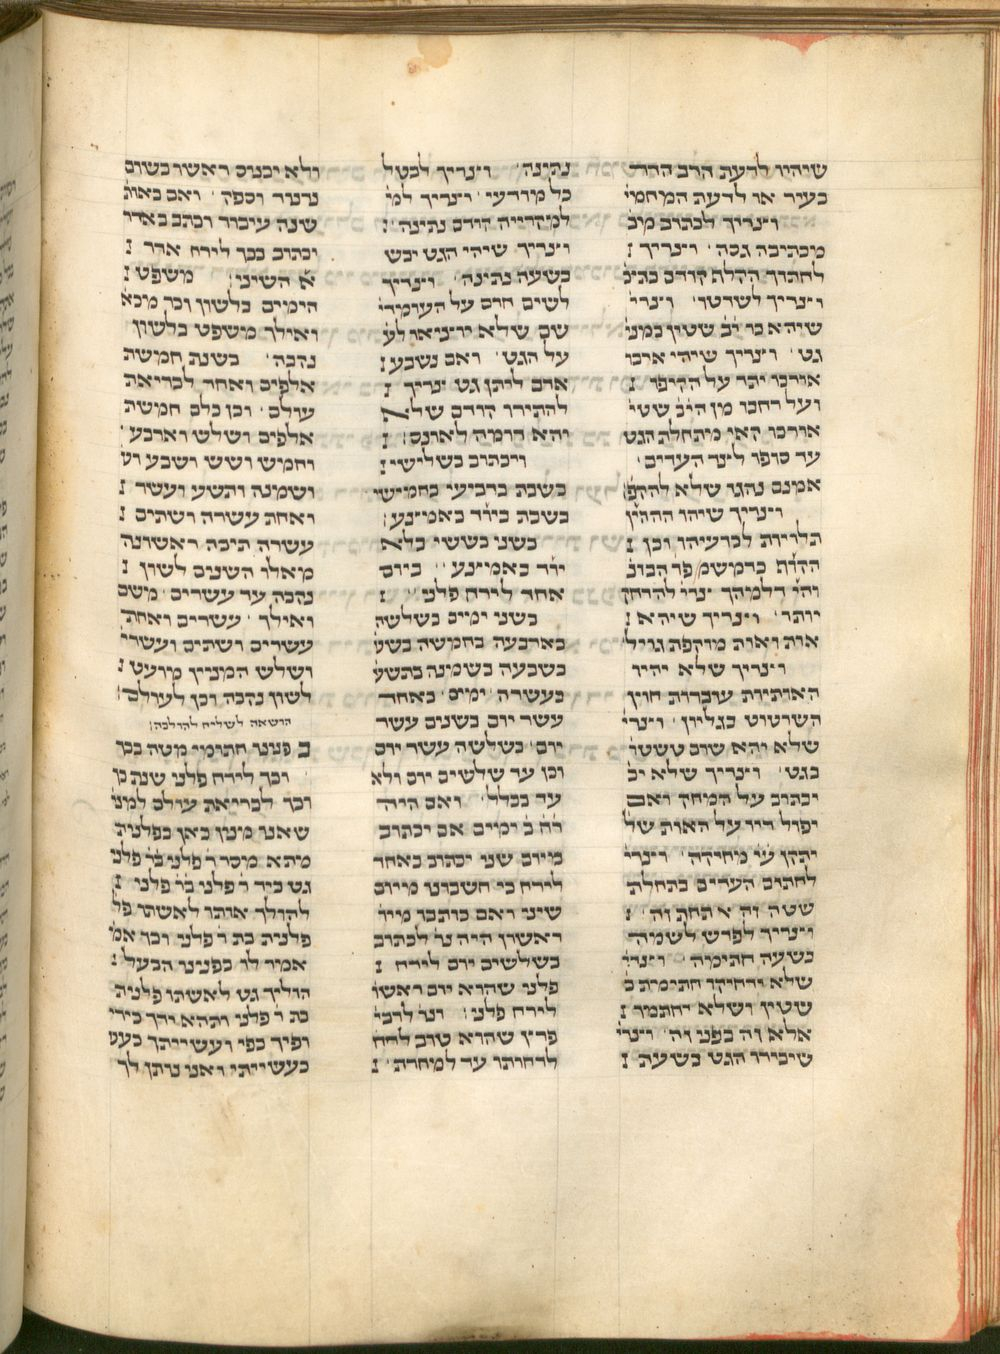 שיהיו לדעת הרב החרד
בעיר או לדעת המיחסי
וצריך לכתוב מיכ
מכתיבה גסה וצריך
לחתוך הקלף קודם כתיב
וצריך לשרטט וצרי
שיהא בו יב שטין כמני
גט וצריך שיהי ארכו
אורכו יתר על ההיקף
ועל רחבו מן הי֗ב שטי
אורכו האי מתחלת הגט
עד סופו לצד העדים
אמנם נהגו שלא להקפי
וצריך שיהו ההה֗ין
תלויות לכרעיהו וכן
הק֗ת כדמשמ פר הבונ
והי דלמהך צרי להרחק
יותר וצריך שיהא
אות ואות מוקפת גויל
וצריך שלא יהיו
האותיות עוברות חוץ
השרטוט בגליון וצרי
שלא יהא שום טשטו
בגט וצריך שלא יכ
יכתוב על המחק ואם
יפול דיו על האות של
יתקן עי מחיקה וצרי
לחתום העדים בתחלת
שטה זה א תחת זה
וצריך לפרש לשמה
בשעת חתימה וצרי
שלא ירחיקו חתימות ב
שטין ושלא יחתמו
אלא זה בפני זה וצרי
שיכירו הגט בשעת
נתינה וצריך לבטל
כל מודעי וצריך למי
למקרייה קודם נתינה
וצריך שיהי הגט יבש
בשעת נתינה וצריך
לשים חרם על העומדי
שם שלא יוציאו לע
על הגט ואם נשבע
אדם ליתן גט צריך
להתירו קודם שלא
יהא דומה לאונס
ויכתוב בשלישי
בשבת ברביעי בחמישי
בשבת ביוד באמצע
בשני בששי בלא
יוד באמצע ביום
אחד לירח פלני
בשני ימים בשלשה
בארבעה בחמשה בשש
בשבעה בשמונה בתשע
בעשרה ימים באחד
עשר יום בשנים עשר
יום בשלשה עשר יום
וכן עד שלשים יום ולא
עד בכלל ואם היה
ר֗ח ב֗ ימים אם יכתוב
מיום שני יכתוב באחד
לירח כי חשבונו מיום
שיני ואם כותבו מיו
ראשון היה נר לכתוב
בשלשים יום לירח
פלני שהוא יום ראשו
לירח פלני ונר לרבי
פרץ שהוא טוב לרח
לדחותו עד למחרת
ולא יכנוס ראשו בשום
נדנוד וספק ואם באות
שנה עיבור וכתב באדר
יכתוב בכך לירח אדר
א השיני משפט
הימים בלשון וכך מכא
ואילך משפט בלשון
נקבה בשנת חמשת
אלפים ואחד לבריאת
עולם וכן כלם חמשת
אלפים ושלש וארבע
וחמיש ושש ושבע וש
ושמונה ותשע ועשר
ואחת עשרה ושתים
עשרה תיבה ראשונה
מאלו השנים לשון
נקבה עד עשרים משם
ואילך עשרים ואחת
עשרים ושתים ועשרי
ושלש המנין מועט
לשון נקבה וכן לעולם
הרשאה לשליח להולכה
ב פנינו חתומי מטה בכך
וכך לירח פלני שנת כך
וכך לבריאת עולם למני
שאנו מנין כאן בפלנית
מתא מסר ר֗ פלני בר֗ פלני
גט ביד ר֗ פלני בר֗ פלני
להוליך אותו לאשתו פל
פלנית בת ר֗ פלני וכך אמ
אמר לו בפנינו הבעל
הוליך גט לאשתו פלנית
בת ר פלני ותהא ידך כידי
ופיך כפי ועשייתך כעש
כעשייתי ואני נותן לך